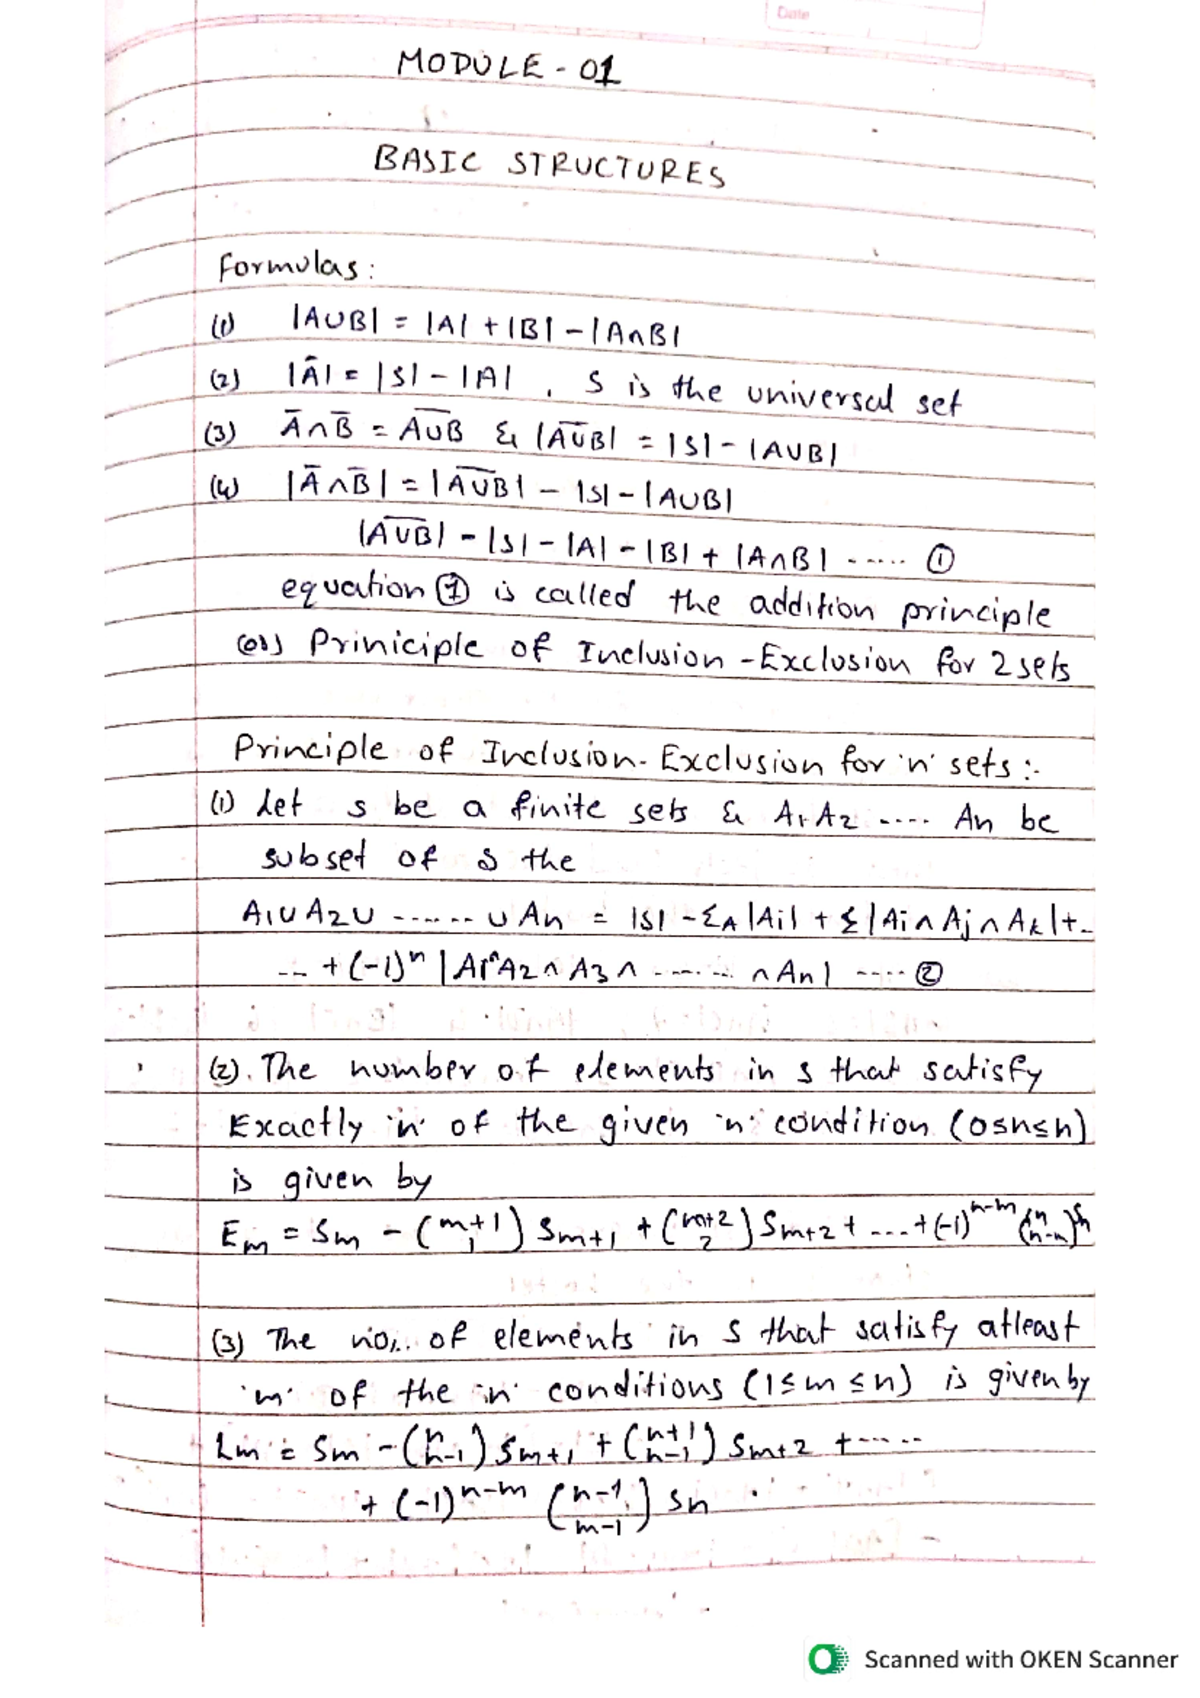 Date
MODULE - 01
BASIC STRUCTURES
Formulas :
(1) |A∪B| = |A| + |B| - |A∩B|
(2) |Ā| = |S| - |A| , S is the universal set
(3) Ā∩B̄ = A̅∪̅B̅ & |A̅∪̅B̅| = |S| - |A∪B|
(4) |Ā∩B̄| = |A̅∪̅B̅| - |S| - |A∪B|
|A̅∪̅B̅| - |S| - |A| - |B| + |A∩B| ..... ①
equation ① is called the addition principle
(or) Priniciple of Inclusion - Exclusion for 2 sets
Principle of Inclusion - Exclusion for 'n' sets :-
(1) Let s be a finite sets & A1 A2 .... An be
subset of S the
A1∪A2∪ ...... ∪An = |S| - ΣA |Ai| + Σ |Ai∩Aj∩Ak| + -
-- + (-1)ⁿ |A1∩A2∩A3∩ ...... ∩An| .... ②
(2). The number of elements in s that satisfy
Exactly 'n' of the given 'n' condition (0≤n≤n)
is given by
Em = Sm - (m+1 1) Sm+1 + (m+2 2) Sm+2 + .... + (-1)ⁿ⁻ᵐ (n n-m) Sn
(3) The no. of elements in S that satisfy atleast
'm' of the 'n' conditions (1≤m≤n) is given by
Lm = Sm - (n n-1) Sm+1 + (n+1 n-1) Sm+2 + .....
+ (-1)ⁿ⁻ᵐ (n-1 m-1) Sn
Scanned with OKEN Scanner